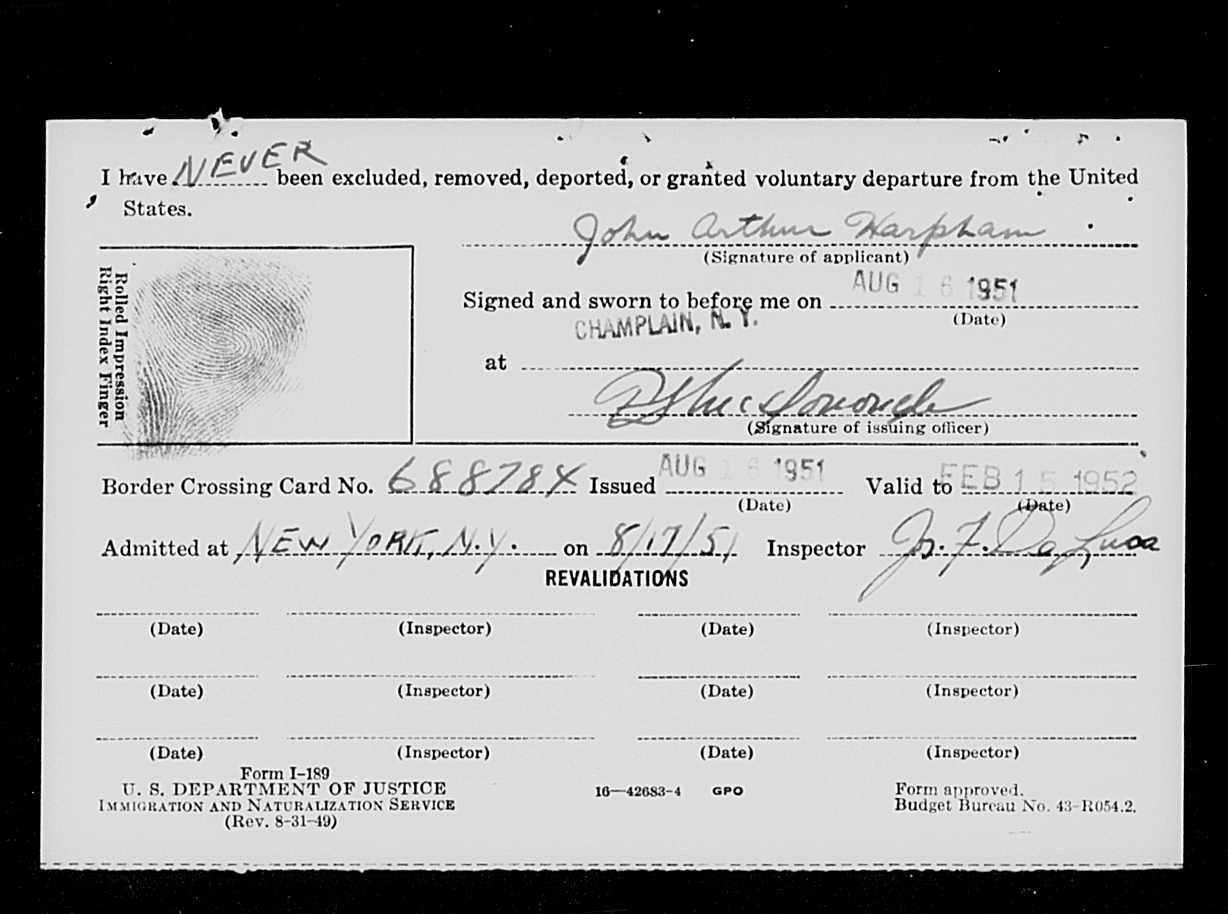 I have NEVER been excluded, removed, deported, or granted voluntary departure from the United
States.
John Arthur Harpham
(Signature of applicant)
Rolled Impression
Right Index Finger
Signed and sworn to before me on AUG 16 1951
(Date)
CHAMPLAIN, N. Y.
at
(Signature of issuing officer)
Border Crossing Card No. 688784 Issued AUG 16 1951 Valid to FEB 15 1952
(Date) (Date)
Admitted at NEW YORK, N.Y. on 8/17/51 Inspector Jo. F. De Luca
REVALIDATIONS
(Date) (Inspector) (Date) (Inspector)
(Date) (Inspector) (Date) (Inspector)
(Date) (Inspector) (Date) (Inspector)
Form I-189
U. S. DEPARTMENT OF JUSTICE
IMMIGRATION AND NATURALIZATION SERVICE
(Rev. 8-31-49)
16—42683-4 GPO
Form approved.
Budget Bureau No. 43-R054.2.